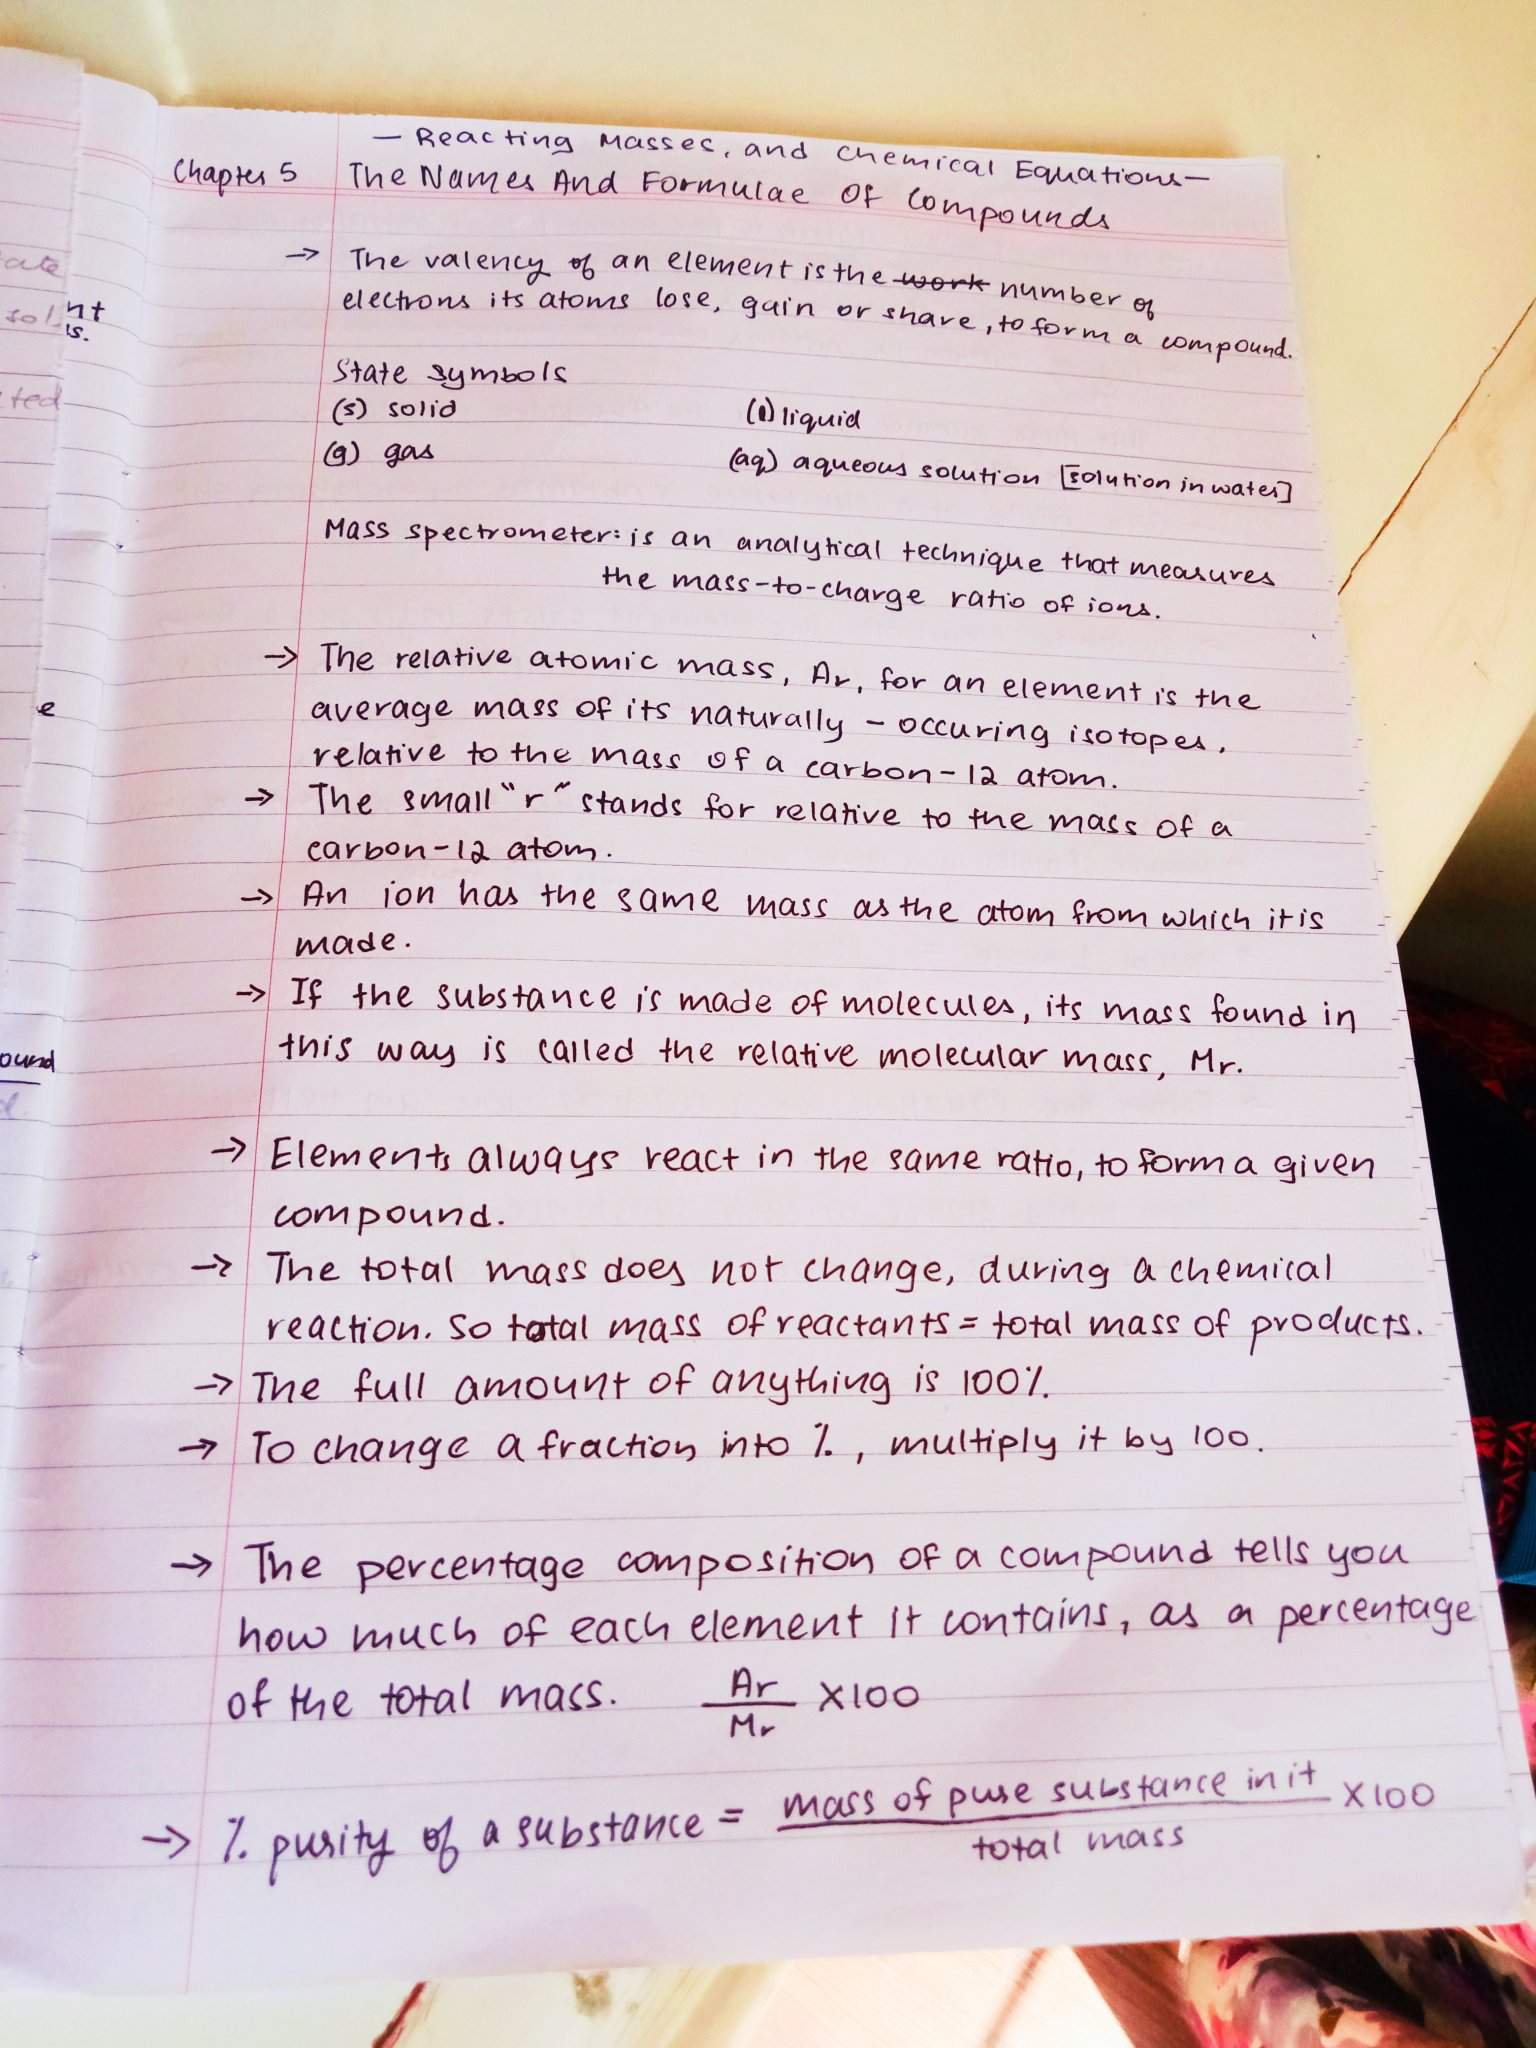 — Reacting Masses, and Chemical Equations —
Chapter 5 The Names And Formulae Of Compounds
→ The valency of an element is the ~~work~~ number of
electrons its atoms lose, gain or share, to form a compound.
State symbols
(s) solid (l) liquid
(g) gas (aq) aqueous solution [solution in water]
Mass spectrometer: is an analytical technique that measures
the mass-to-charge ratio of ions.
→ The relative atomic mass, Ar, for an element is the
average mass of its naturally - occuring isotopes,
relative to the mass of a carbon-12 atom.
→ The small "r" stands for relative to the mass of a
carbon-12 atom.
→ An ion has the same mass as the atom from which it is
made.
→ If the substance is made of molecules, its mass found in
this way is called the relative molecular mass, Mr.
→ Elements always react in the same ratio, to form a given
compound.
→ The total mass does not change, during a chemical
reaction. So total mass of reactants = total mass of products.
→ The full amount of anything is 100%.
→ To change a fraction into %, multiply it by 100.
→ The percentage composition of a compound tells you
how much of each element it contains, as a percentage
of the total mass. Ar/Mr X100
→ % purity of a substance = mass of pure substance in it / total mass X100